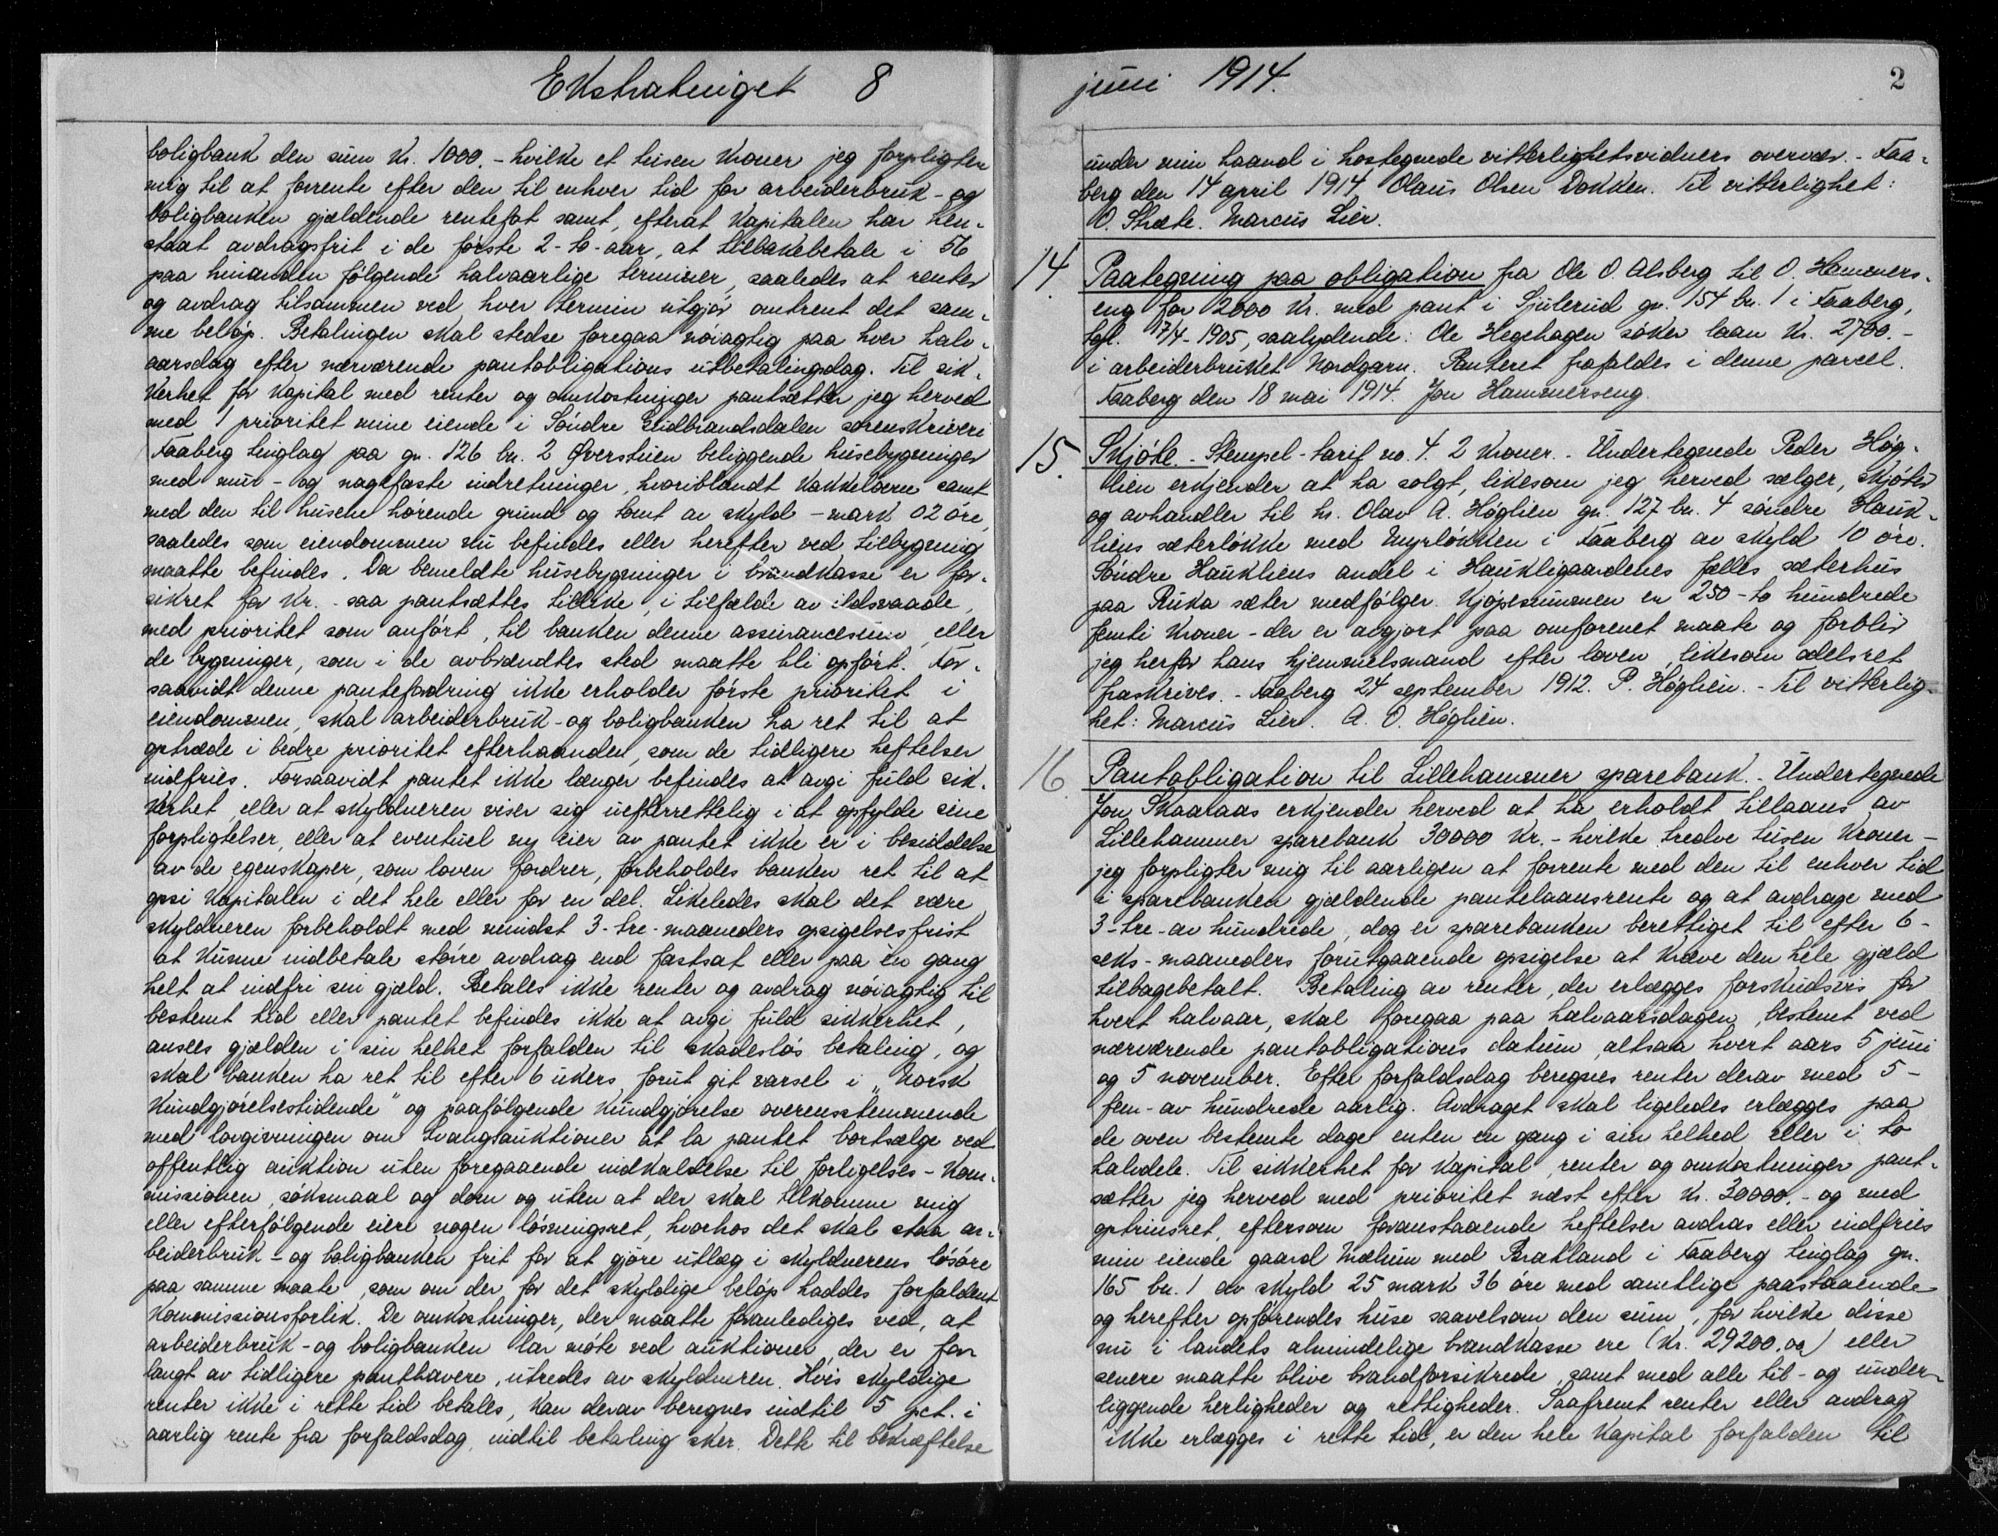 Ekstratinget 8
boligbank den sum Kr. 1000.- hvilke et tusen kroner jeg forpligter
mig til at forrente efter den til enhver tid for arbeiderbruk- og
boligbanken gjældende rentefot samt, efterat kapitalen har hen-
staat avdragsfrit i de første 2-to-aar, at tilbakebetale i 56
paa hinanden følgende halvaarlige terminer, saaledes at renter
og avdrag tilsammen ved hver termin utgjør omtrent det sam-
me beløp. Betalingen skal stedse foregaa nøiagtig paa hver halv-
aarsdag efter nærværende pantobligations utbetalingsdag. Til sik-
kerhet for kapital med renter og omkostninger pantsætter jeg herved
med 1 prioritet mine eiende i Søndre Gudbrandsdalen sorenskriveri
Faaberg tinglag paa gn. 126 bn. 2 Øverstuen beliggende husebygninger
med mur- og nagefaste indretninger, hvoriblandt kakkelovne samt
med den til husene hørende grund og tomt av skyld - mark 02 øre,
saaledes som eiendommen nu befindes eller herefter ved tilbygning
maatte befindes. Da bemeldte husebygninger i brandkasse er for-
sikret for Kr. - saa pantsættes tillike, i tilfælde av ildsvaade,
med prioritet som anført, til banken denne assurancesum, eller
de bygninger, som i de avbrændtes sted maatte bli opført. For-
saavidt denne pantefordring ikke erholder første prioritet i
eiendommen, skal arbeiderbruk- og boligbanken ha ret til at
optræde i bedre prioritet efterhaanden, som de tidligere heftelser
indfries. Forsaavidt pantet ikke længer befindes at avgi fuld sik-
kerhet, eller at skyldneren viser sig uefterrettelig i at opfylde sine
forpligtelser, eller at eventuel ny eier av pantet ikke er i besiddelse
av de egenskaper, som loven fordrer, forbeholdes banken ret til at
opsi kapitalen i det hele eller for en del. Likeledes skal det være
skyldneren forbeholdt med mindst 3-tre-maaneders opsigelsesfrist
at kunne indbetale større avdrag end fastsat eller paa én gang
helt at indfri sin gjæld. Betales ikke renter og avdrag nøiagtig til
bestemt tid eller pantet befindes ikke at avgi fuld sikkerhet,
ansees gjælden i sin helhet forfalden til skadesløs betaling, og
skal banken ha ret til efter 6 ukers forut git varsel i „Norsk
Kundgjørelsestidende" og paafølgende kundgjørelse overensstemmende
med lovgivningen om tvangsauktioner at la pantet bortsælge ved
offentlig auktion uten foregaaende indkaldelse til forligelses-kom-
missionen, søksmaal og dom og uten at der skal tilkomme mig
eller efterfølgende eiere nogen løsningsret, hvorhos det skal staa ar-
beiderbruk- og boligbanken frit for at gjøre utlæg i skyldnerens løsøre
paa samme maate, som om der for det skyldige beløp haddes forfaldent
kommissionsforlik. De omkostninger, der maatte foranlediges ved, at
arbeiderbruk- og boligbanken lar møte ved auktioner, der er for-
langt av tidligere panthavere, utredes av skyldneren. Hvis skyldige
renter ikke i rette tid betales, kan derav beregnes indtil 5 pct. i
aarlig rente fra forfaldsdag indtil betaling sker. Dette til bekræftelse
juni 1914.
2
under min haand i hostegnede vitterlighetsvidners overvær. - Faa-
berg den 14 april 1914. Olaus Olsen Dokken. Til vitterlighet:
O. Stræte. Marcus Lier.
14. Paategning paa obligation fra Ole O. Alsberg til O. Hammers-
eng for 2000 Kr. med pant i Sjulerud gn. 154 bn. 1 i Faaberg,
tgl. 17/4-1905, saalydende: Ole Hegehagen søker laan Kr. 2700.-
i arbeiderbruket Nordgarn. Panteret frafaldes i denne parcel.
Faaberg den 18 mai 1914. Jon Hammerseng.
15. Skjøte. - Stempel-tarif no. 4. 2 kroner. - Undertegnede Peder Høg-
lien erkjender at ha solgt, likesom jeg herved sælger, skjøter
og avhandler til hr. Olav A. Høglien gn. 127 bn. 4 søndre Hauk-
liens sæterløkke med Myrløkken i Faaberg av skyld 10 øre.
Søndre Haukliens andel i Haukligaardenes fælles sæterhus
paa Ruka sæter medfølger. Kjøpesummen er 250 - to hundrede
femti kroner - der er avgjort paa omforenet maate og forblir
jeg herfor hans hjemmelsmand efter loven, likesom odelsret
fraskrives. - Faaberg 24 september 1912. P. Høglien. - Til vitterlig-
het: Marcus Lier. A. O. Høglien.
16. Pantobligation til Lillehammer sparebank. - Undertegnede
Jon Skaaraas erkjender herved at ha erholdt tillaans av
Lillehammer sparebank 30000 Kr. - hvilke tredve tusen kroner -
jeg forpligter mig til aarligen at forrente med den til enhver tid
i sparebanken gjældende pantelaansrente og at avdrage med
3-tre-av hundrede, dog er sparebanken berettiget til efter 6-
seks-maaneders forutgaaende opsigelse at kræve den hele gjæld
tilbagebetalt. Betaling av renter, der erlægges forskudsvis for
hvert halvaar, skal foregaa paa halvaarsdagen, bestemt ved
nærværende pantobligations datum, altsaa hvert aars 5 juni
og 5 november. Efter forfaldsdag beregnes renter derav med 5-
fem-av hundrede aarlig. Avdraget skal ligeledes erlægges paa
de oven bestemte dage enten en gang i sin helhed eller i to
halvdele. Til sikkerhet for kapital, renter og omkostninger pant-
sætter jeg herved med prioritet næst efter Kr. 30000,- og med
optrinsret, eftersom foranstaaende heftelser avdras eller indfries
min eiende gaard Mælum med Brætland i Faaberg tinglag gn.
165 bn. 1 av skyld 25 mark 36 øre med samtlige paastaaende
og herefter opførendes huse saavelsom den sum, for hvilke disse
nu i landets almindelige brandkasse ere (Kr. 29200,00) eller
senere maatte blive brandforsikrede, samt med alle til- og under-
liggende herligheder og rettigheder. Saafremt renter eller avdrag
ikke erlægges i rette tid, er den hele kapital forfalden til